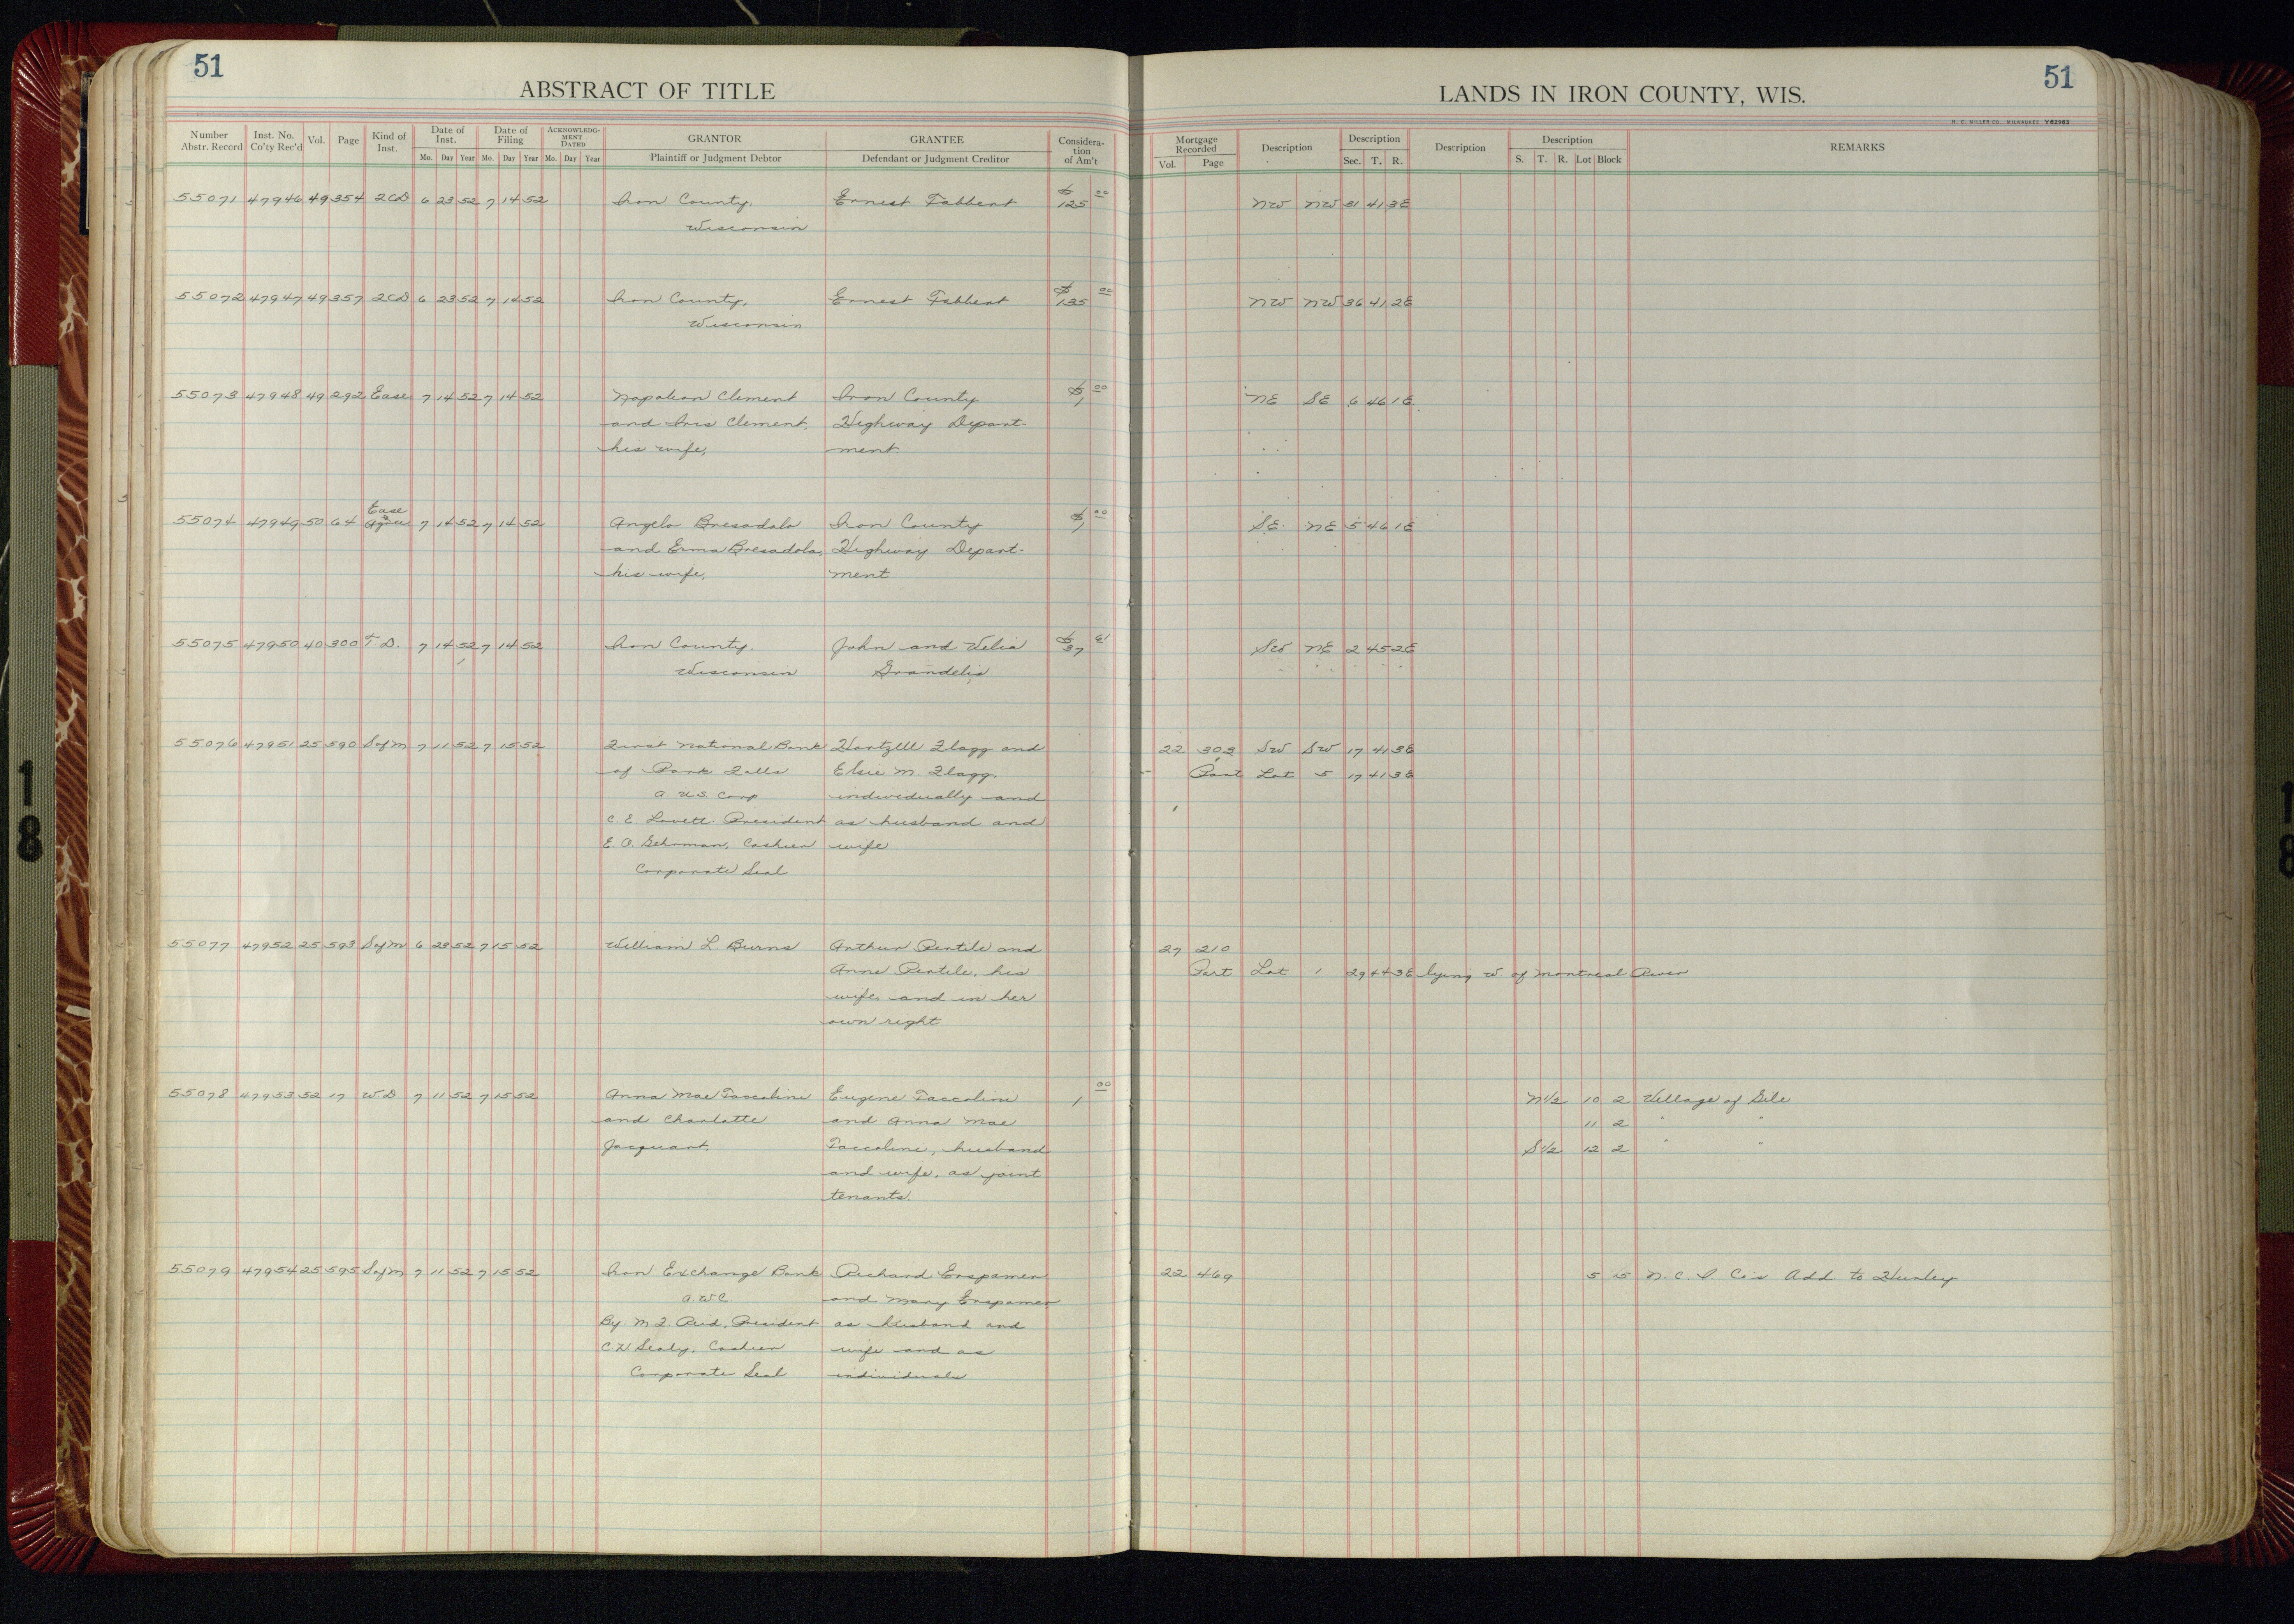 51
ABSTRACT OF TITLE
LANDS IN IRON COUNTY, WIS.
51
H. C. MILLER CO. MILWAUKEE V62963
Number Abstr. Record Inst. No. Co'ty Rec'd Vol. Page Kind of Inst. Date of Inst. Mo. Day Year Date of Filing Mo. Day Year ACKNOWLEDGMENT DATED Mo. Day Year GRANTOR Plaintiff or Judgment Debtor GRANTEE Defendant or Judgment Creditor Consideration of Am't
Mortgage Recorded Vol. Page Description Description Sec. T. R. Description Description S. T. R. Lot Block REMARKS
55071 47946 49 354 2CD 6 23 52 7 14 52 Iron County, Ernest Fabbert $125 00 NW NW 31 41 3E
Wisconsin
55072 47947 49 357 2CD 6 23 52 7 14 52 Iron County, Ernest Fabbert $135 00 NW NW 36 41 2E
Wisconsin
55073 47948 49 292 Ease 7 14 52 7 14 52 Napoleon Clement Iron County $1 00 NE SE 6 46 1E
and Iris Clement, Highway Depart-
his wife, ment
Ease
55074 47949 50 64 & Agree 7 14 52 7 14 52 Angelo Bresadola Iron County $1 00 SE NE 5 46 1E
and Erma Bresadola, Highway Depart-
his wife, ment
55075 47950 40 300 T.D. 7 14 52 7 14 52 Iron County. John and Velia $37 SW NE 2 45 2E
Wisconsin Grandelis
55076 47951 25 590 SofM 7 11 52 7 15 52 First National Bank Hartzell Flagg and 22 303 SW SW 17 41 3E
of Park Falls Elsie M Flagg, Part Lot 5 17 41 3E
a U.S. Corp individually and
C. E. Lovett President as husband and
E. O. Gehrman, Cashier wife
Corporate Seal
55077 47952 25 593 SofM 6 23 52 7 15 52 William L. Burns Arthur Pertile and 27 210
Anne Pertile, his Part Lot 1 29 44 3E lying W. of Montreal River
wife and in her
own right
55078 47953 52 17 W.D. 7 11 52 7 15 52 Anna Mae Faccoline Eugene Faccoline 1 00 N1/2 10 2 Village of Gile
and Charlotte and Anna Mae 11 2 " "
Jacquart. Faccoline, husband S1/2 12 2 " "
and wife, as joint
tenants.
55079 47954 25 595 SofM 7 11 52 7 15 52 Iron Exchange Bank Richard Erspamer 22 469 5 15 N. C. I. Co's Add to Hurley
a. W.C. and Mary Erspamer
By: M. J. Reid, President as husband and
Cashier wife and as
Corporate Seal individuals
18